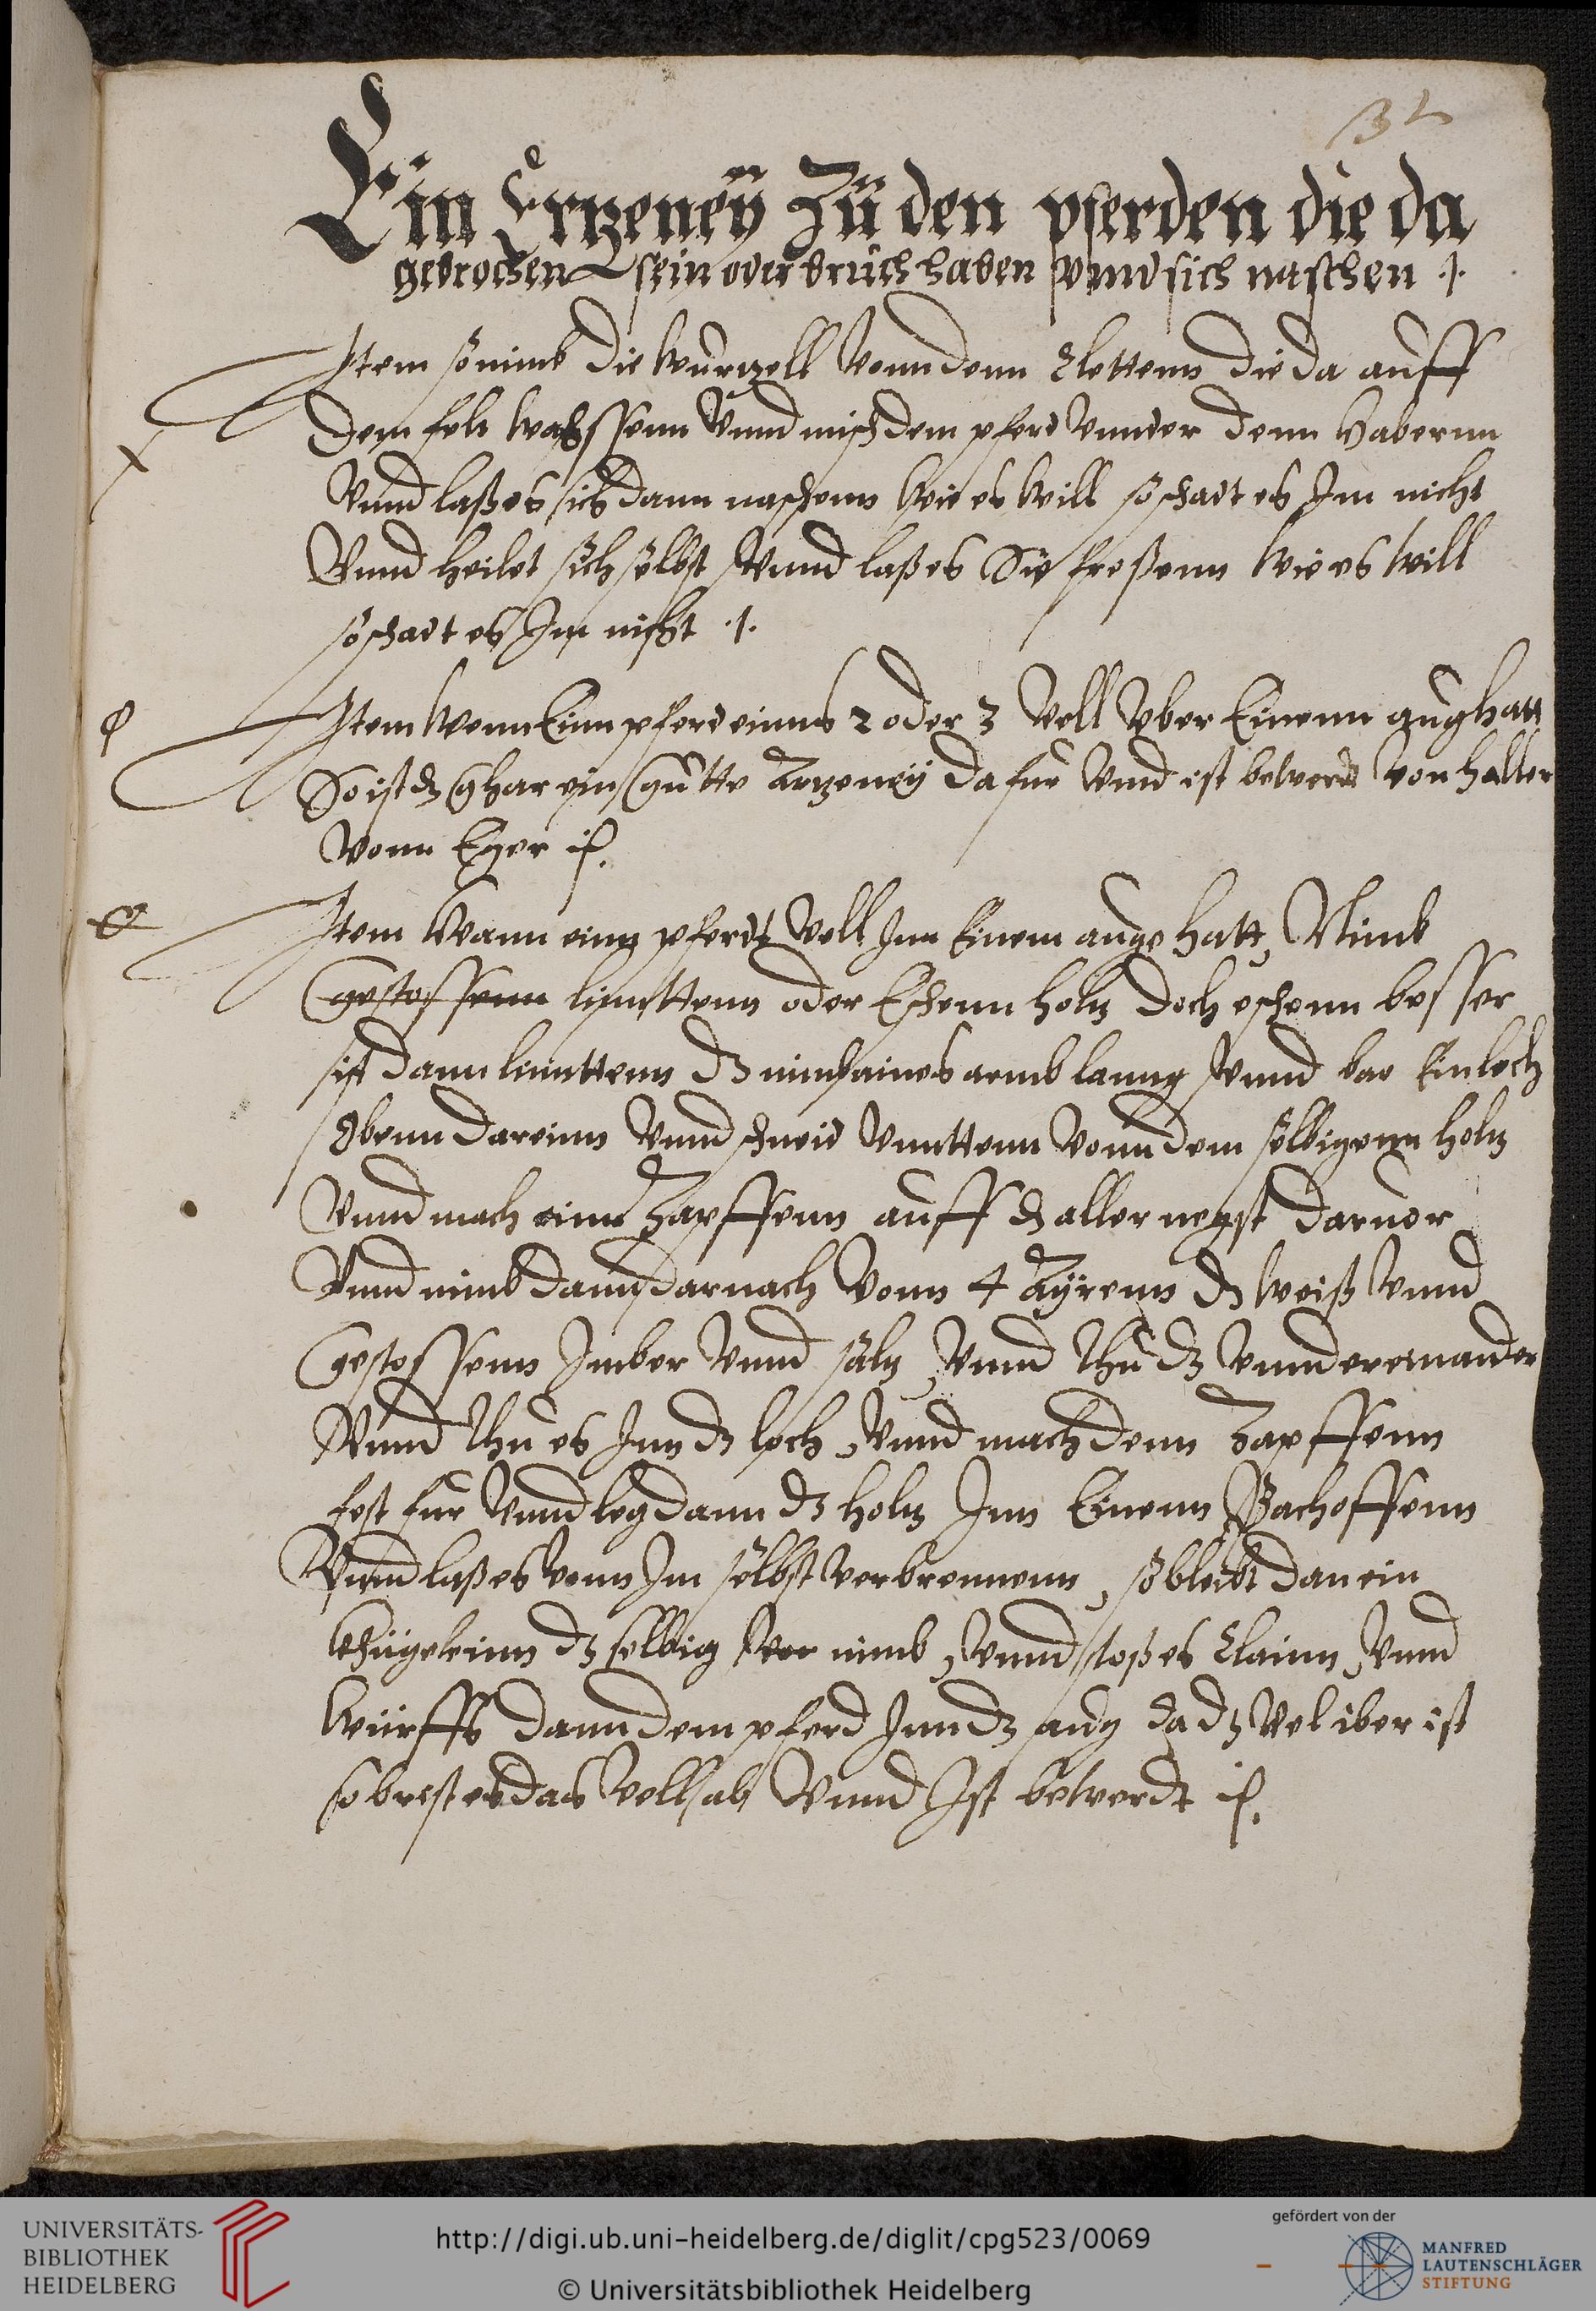 32
Ein Ertzeneÿ Zü den pferden die da
gebrochen sein oder brüch haben vnnd sich naschen ./.
Item so nimb die wurtzell vonn denn Clettenn die da auff
Dem felt wachssenn vnnd misch dem pferd vnnder denn Habernn
Vnnd laß es sich dann naschenn wie es will so schadt es Im nicht
Vnnd heilet sich selbst vnnd laß es Sie freßenn wie es will
so schadt es Im nicht ./.
Item wenn Einn pferd einns 2 oder 3 vell vber Einenn aug hatt
So ist dz ein gutte Artzeneÿ dafur vnnd ist bewerdt von
vonn Eger
Item Wann einn pferdt vell Inn Einem auge hatt, Nimb
gestossenn linnttenn oder Eschenn holtz doch eschenn besser
ist dann linnttenn dz nimb aines armb lanng vnnd bor Ein loch
Obenn dareinn vnnd schneid vnnttenn vonn dem selbigenn holtz
Vnnd mach einn Zapffenn auff dz aller negst daruor
Vnnd nimb dann darnach vonn 4 Aÿrenn dz weiß vnnd
gestossenn Imber vnnd saltz, vnnd thu dz vnndereinander
Vnnd thu es Inn dz loch, vnnd mach denn Zapffenn
fest fur vnnd leg dann dz holtz Inn Einenn Bachoffenn
Vnnd laß es vonn Im selbst verbrennenn, so bleibt dan ein
khügeleinn dz selbig nimb, vnnd stoß es Clainn, vnnd
würffs dann dem pferd Inn dz aug da dz vel iber ist
so es das vell ab Vnnd Ist bewerdt
UNIVERSITÄTS-
BIBLIOTHEK
HEIDELBERG
http://digi.ub.uni-heidelberg.de/diglit/cpg523/0069
© Universitätsbibliothek Heidelberg
gefördert von der
MANFRED
LAUTENSCHLÄGER
STIFTUNG